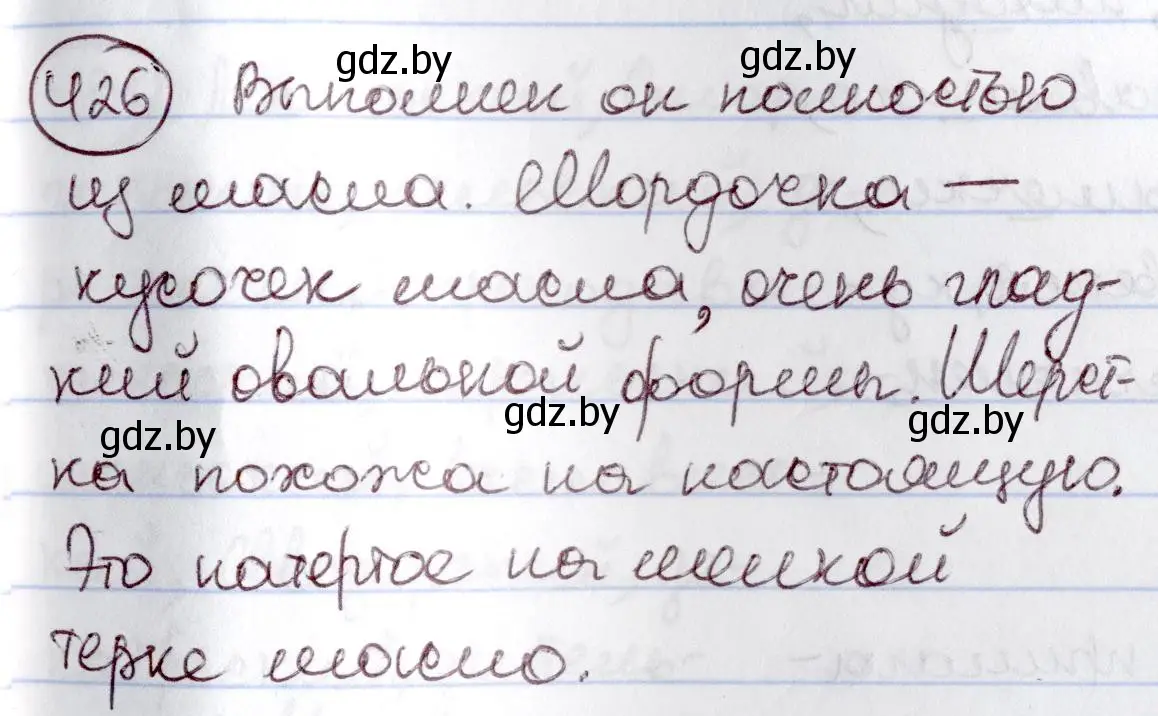 gdz.by gdz.by
426 Выполнен он полностью
из масла. Мордочка —
кусочек масла, очень глад-
кий овальной формы. Шерст-
gdz.by gdz.by gdz.by
ка похожа на настоящую.
Это натертое на мелкой
терке масло.